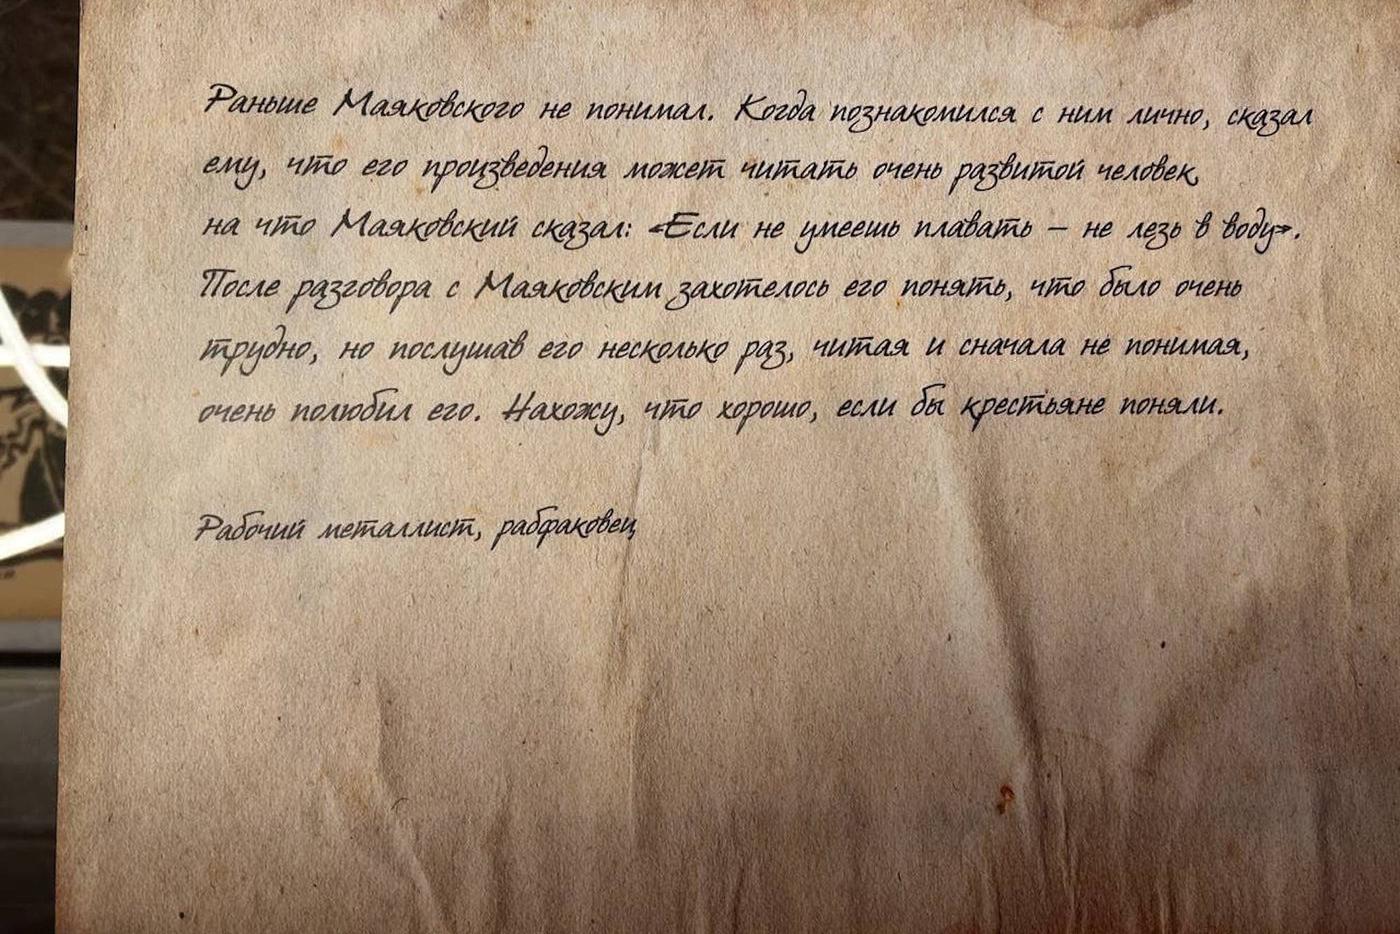 Раньше Маяковского не понимал. Когда познакомился с ним лично, сказал
ему, что его произведения может читать очень развитой человек,
на что Маяковский сказал: «Если не умеешь плавать – не лезь в воду».
После разговора с Маяковским захотелось его понять, что было очень
трудно, но послушав его несколько раз, читая и сначала не понимая,
очень полюбил его. Нахожу, что хорошо, если бы крестьяне поняли.
Рабочий металлист, рабфаковец